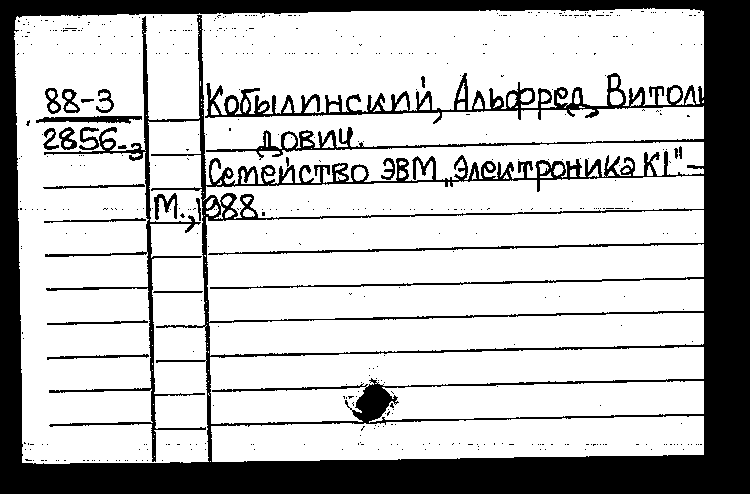 88-3
2856-3
Кобылинский, Альфред Витоль
дович.
Семейство ЭВМ „Электроника К1". —
М., 1988.